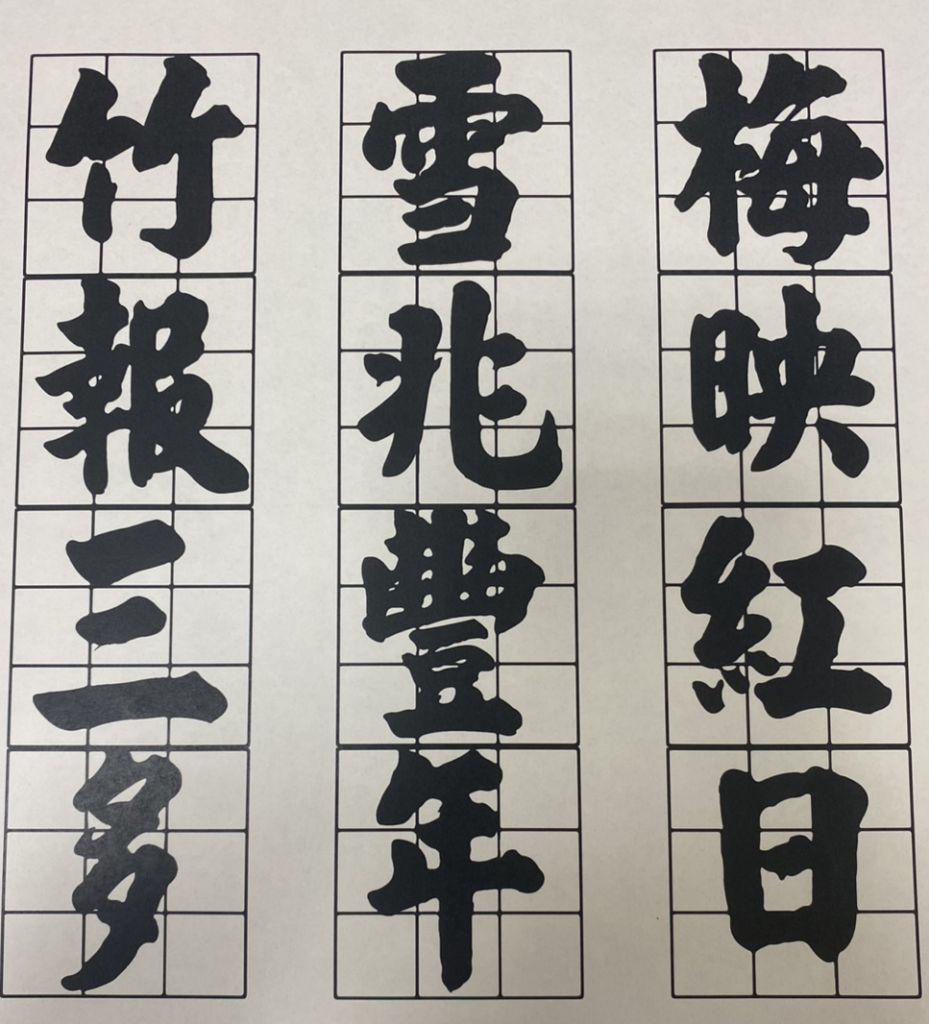 梅映紅日
雪兆豐年
竹報三多